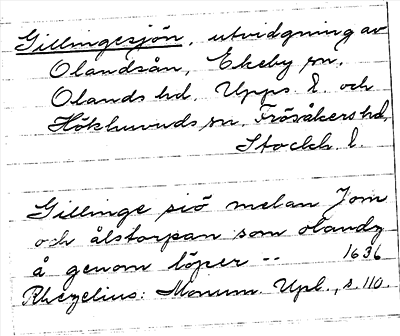 Gillingesjön, utvidgning av
Olandsån, Ekeby sn,
Olands hd, Upps. l. och
Hökhuvuds sn, Frösåkers hd,
Stockh. l.
Gillinge siö melan Jom
och ålstorpan som olandz
å genom löper -- 1636
Rhezelius: Monum. Upl., s. 110.